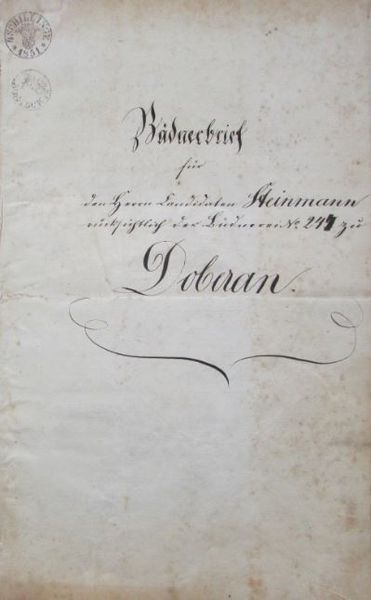 SCHILLINGE
1851
Büdnerbrief
für
den Herrn Candidaten Steinmann
rücksichtlich der Büdnerei No. 247 zu
Doberan.